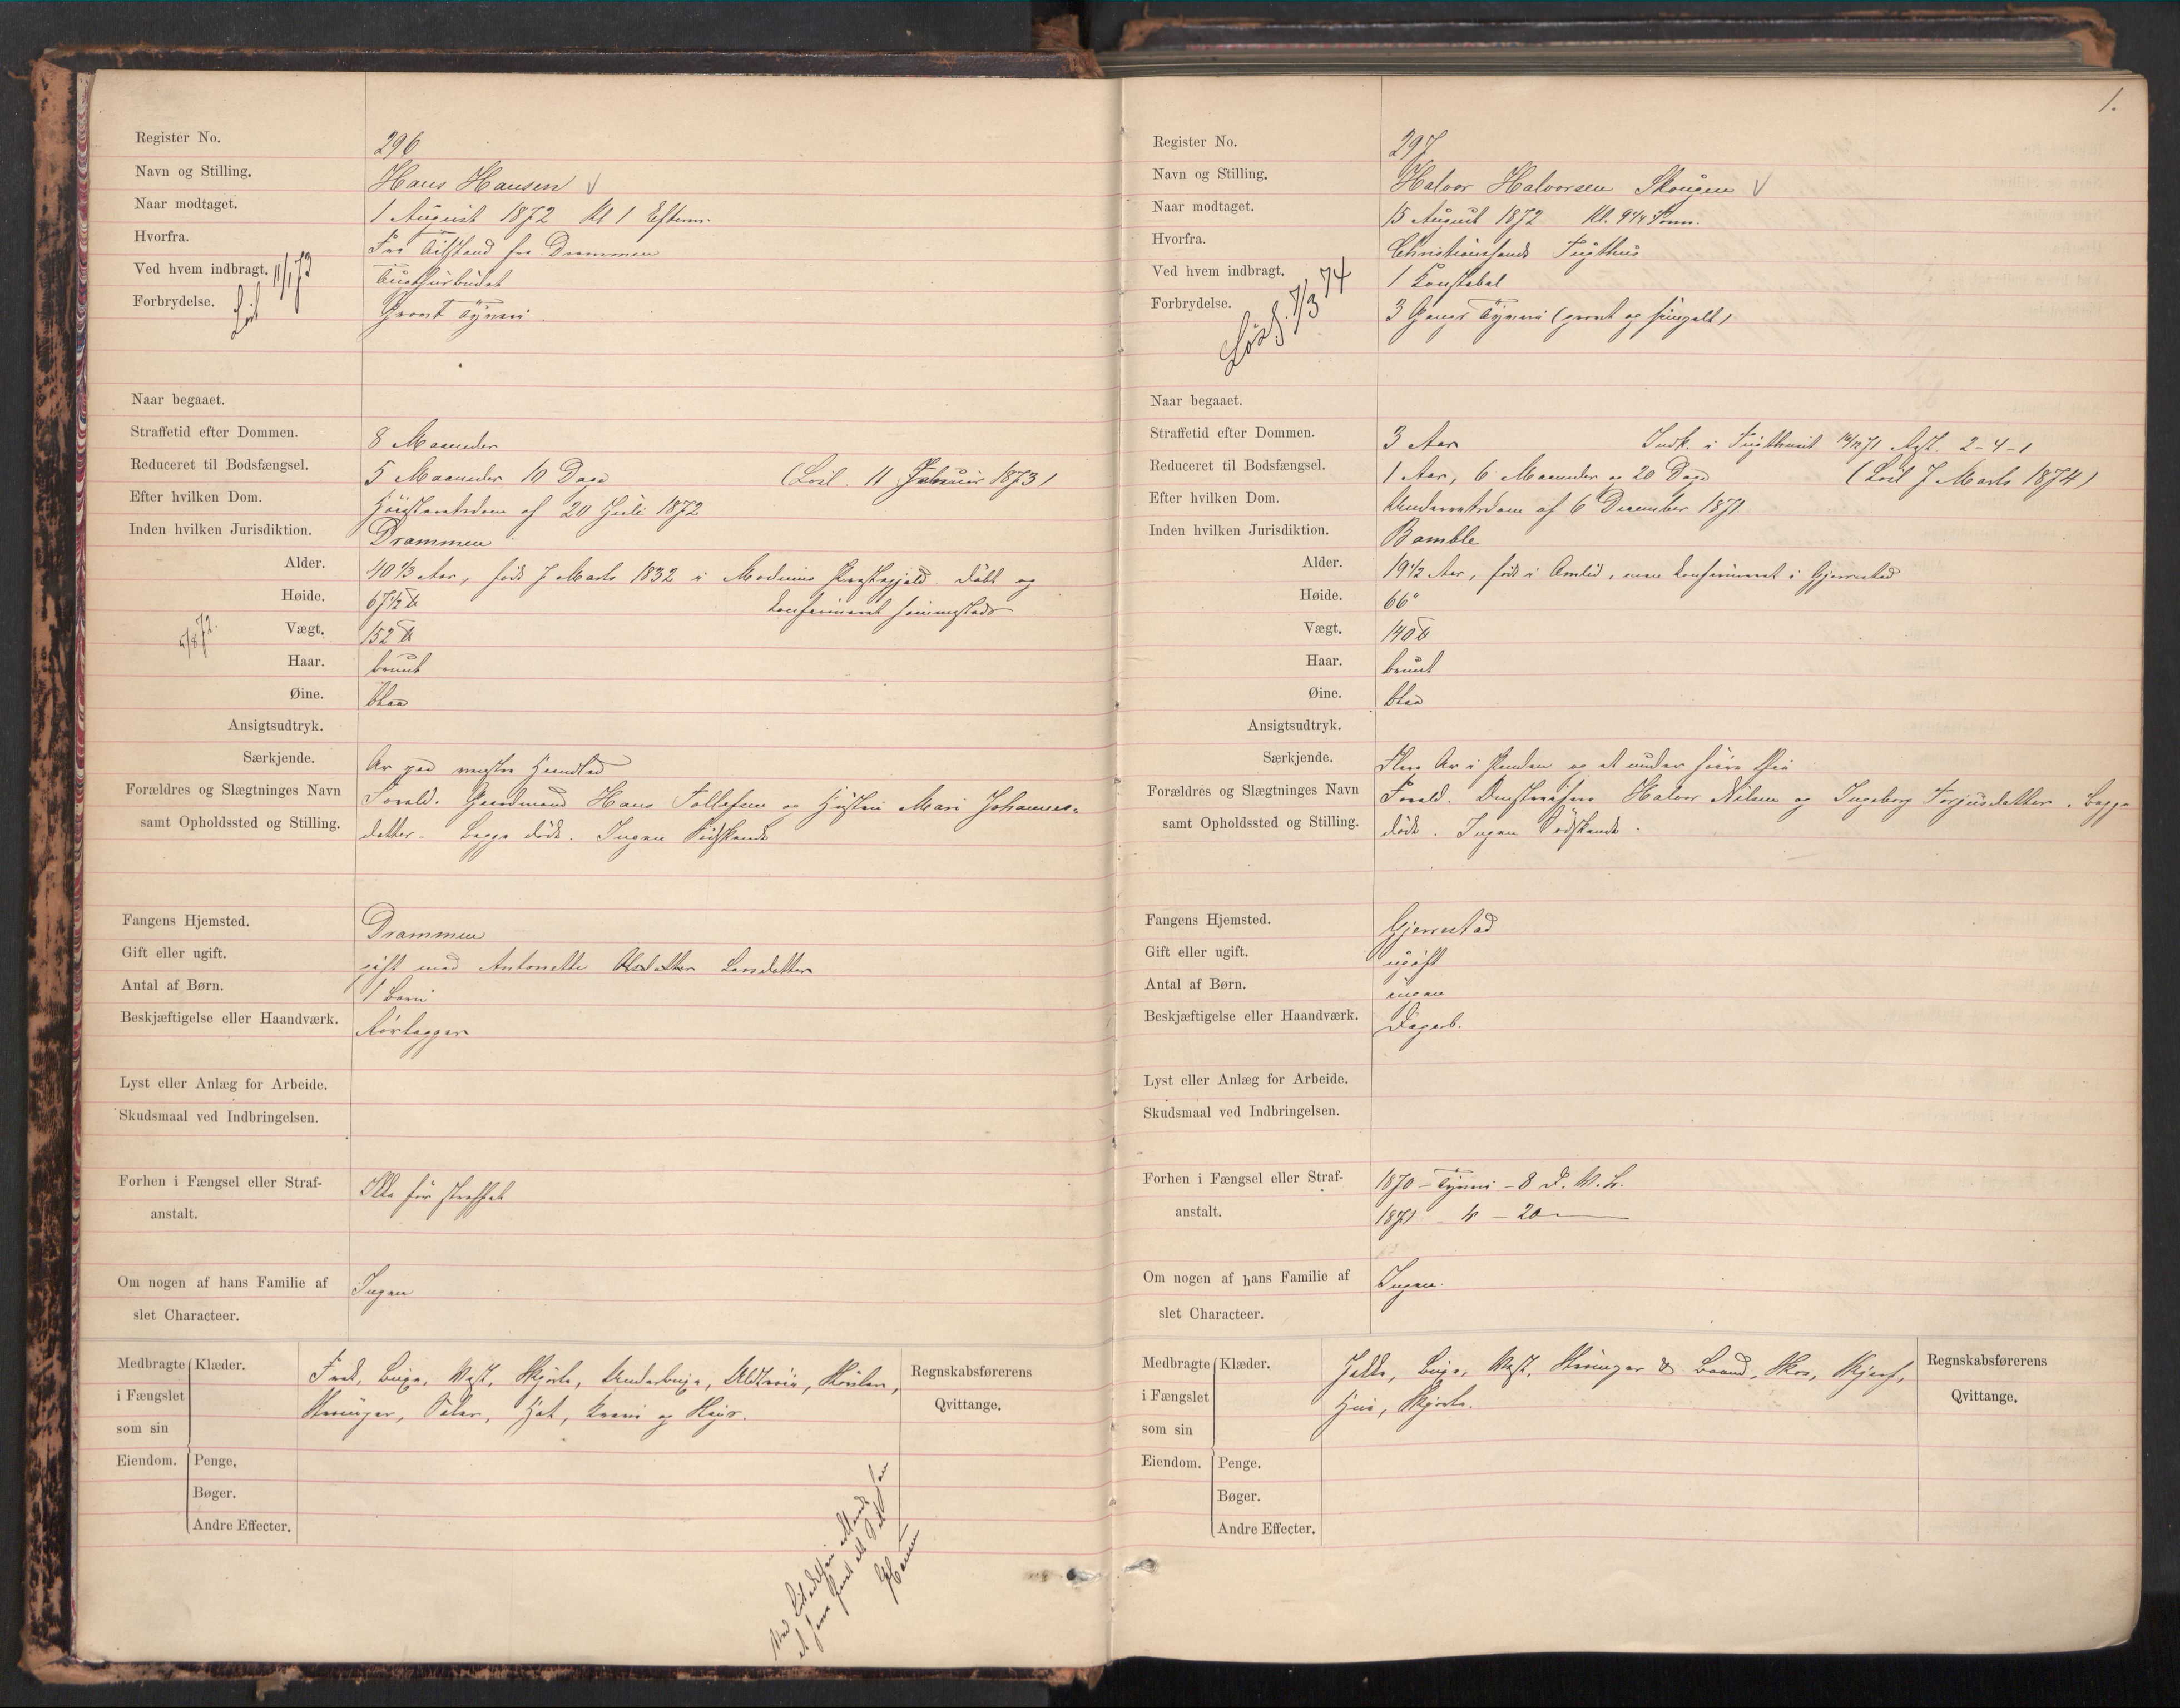 Register No. 296
Navn og Stilling. Hans Hansen
Naar modtaget. 1 August 1872 Kl 1 Efterm.
Hvorfra. Fra Tilstand fra Drammen
Ved hvem indbragt.
Forbrydelse. Grovt Tyveri
Løsl 11/1 73
Naar begaaet.
Straffetid efter Dommen. 8 Maaneder
Reduceret til Bodsfængsel. 5 Maaneder 10 Dage (Løsl. 11 Januar 1873)
Efter hvilken Dom. Høiesteretsdom af 20 Juli 1872
Inden hvilken Jurisdiktion. Drammen
Alder. 40 1/3 Aar, født 7 Marts 1832 i Modums Præstegjeld. Døbt og
Høide. 67 1/2 konfirmeret sammesteds
5/8 72.
Vægt. 152 ℔
Haar. brunt
Øine. blaa
Ansigtsudtryk.
Særkjende. Ar paa venstre Haandled
Forældres og Slægtninges Navn Foræld. Gaardmand Hans Tollefsen og Hustru Mari Johannes-
samt Opholdssted og Stilling. datter - begge døde. Ingen Sødskende
Fangens Hjemsted. Drammen
Gift eller ugift. gift med Antonette Olsdatter Larsdatter
Antal af Børn. 1 Barn
Beskjæftigelse eller Haandværk.
Lyst eller Anlæg for Arbeide.
Skudsmaal ved Indbringelsen.
Forhen i Fængsel eller Straf- Ikke før straffet
anstalt.
Om nogen af hans Familie af Ingen
slet Characteer.
Medbragte Klæder. Frak, Buxe, Vest, Skjorte, Underbuxe, Uldtrøie, Støvler,
i Fængslet Strømper, Seler, Hat, Krave og
som sin
Eiendom. Penge,
Bøger.
Andre Effecter.
Regnskabsførerens
Qvittange.
Hansen
1.
Register No. 297
Navn og Stilling. Halvor Halvorsen Skougen
Naar modtaget. 15 August 1872 Kl. 9 1/4 Form.
Hvorfra. Christianssands Tugthus
Ved hvem indbragt. 1 Konstabel
Forbrydelse. 3 Gangs Tyveri (grovt og simpelt)
Løsl. 7/3 74
Naar begaaet.
Straffetid efter Dommen. 3 Aar Indk. i Tugthuset 14/12 71 2-4-1
Reduceret til Bodsfængsel. 1 Aar, 6 Maaneder og 20 Dage (Løsl 7 Marts 1874)
Efter hvilken Dom. Underretsdom af 6 December 1871.
Inden hvilken Jurisdiktion. Bamble
Alder. 19 1/2 Aar, født i Omlid, men konfirmeret i Gjerrestad
Høide. 66"
Vægt. 140 ℔
Haar. brunt
Øine. blaa
Ansigtsudtryk.
Særkjende. Flere Ar i Panden og et under høire Øie
Forældres og Slægtninges Navn Foræld. Halvor Nilsen og Ingeborg Terjusdatter, begge
samt Opholdssted og Stilling. døde. Ingen Sødskende.
Fangens Hjemsted. Gjerrestad
Gift eller ugift. ugift
Antal af Børn. ingen
Beskjæftigelse eller Haandværk. Dagarb.
Lyst eller Anlæg for Arbeide.
Skudsmaal ved Indbringelsen.
Forhen i Fængsel eller Straf- 1870 - Tyveri - 8 D. V. B.
anstalt. 1871 - " - 20 —
Om nogen af hans Familie af Ingen.
slet Characteer.
Medbragte Klæder. Jakke, Buxe, Vest, Strømper & Baand, Skoe, Skjærf,
i Fængslet Hue, Skjorte.
som sin
Eiendom. Penge.
Bøger.
Andre Effecter.
Regnskabsførerens
Qvittange.